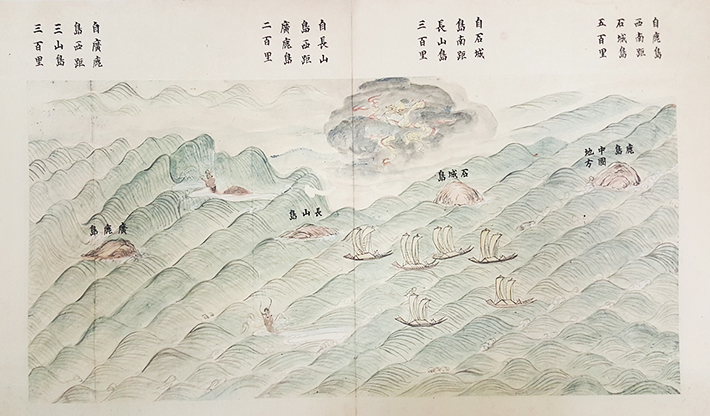 自鹿島
西南距
石城島
五百里
自石城
島南距
長山島
三百里
自長山
島西距
廣鹿島
二百里
自廣鹿
島西距
三山島
三百里
鹿島
中國
地方
石城島
長山島
廣鹿島